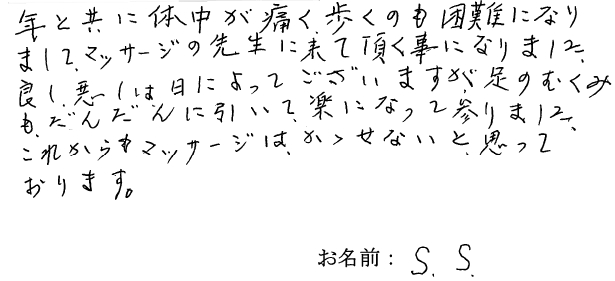 年と共に体中が痛く、歩くのも困難になり
まして、マッサージの先生に来て頂く事になりました。
良し悪しは日によってございますが、足のむくみ
も、だんだんに引いて、楽になって参りました、
これからもマッサージは、かゝせないと、思って
おります。
お名前： S. S.